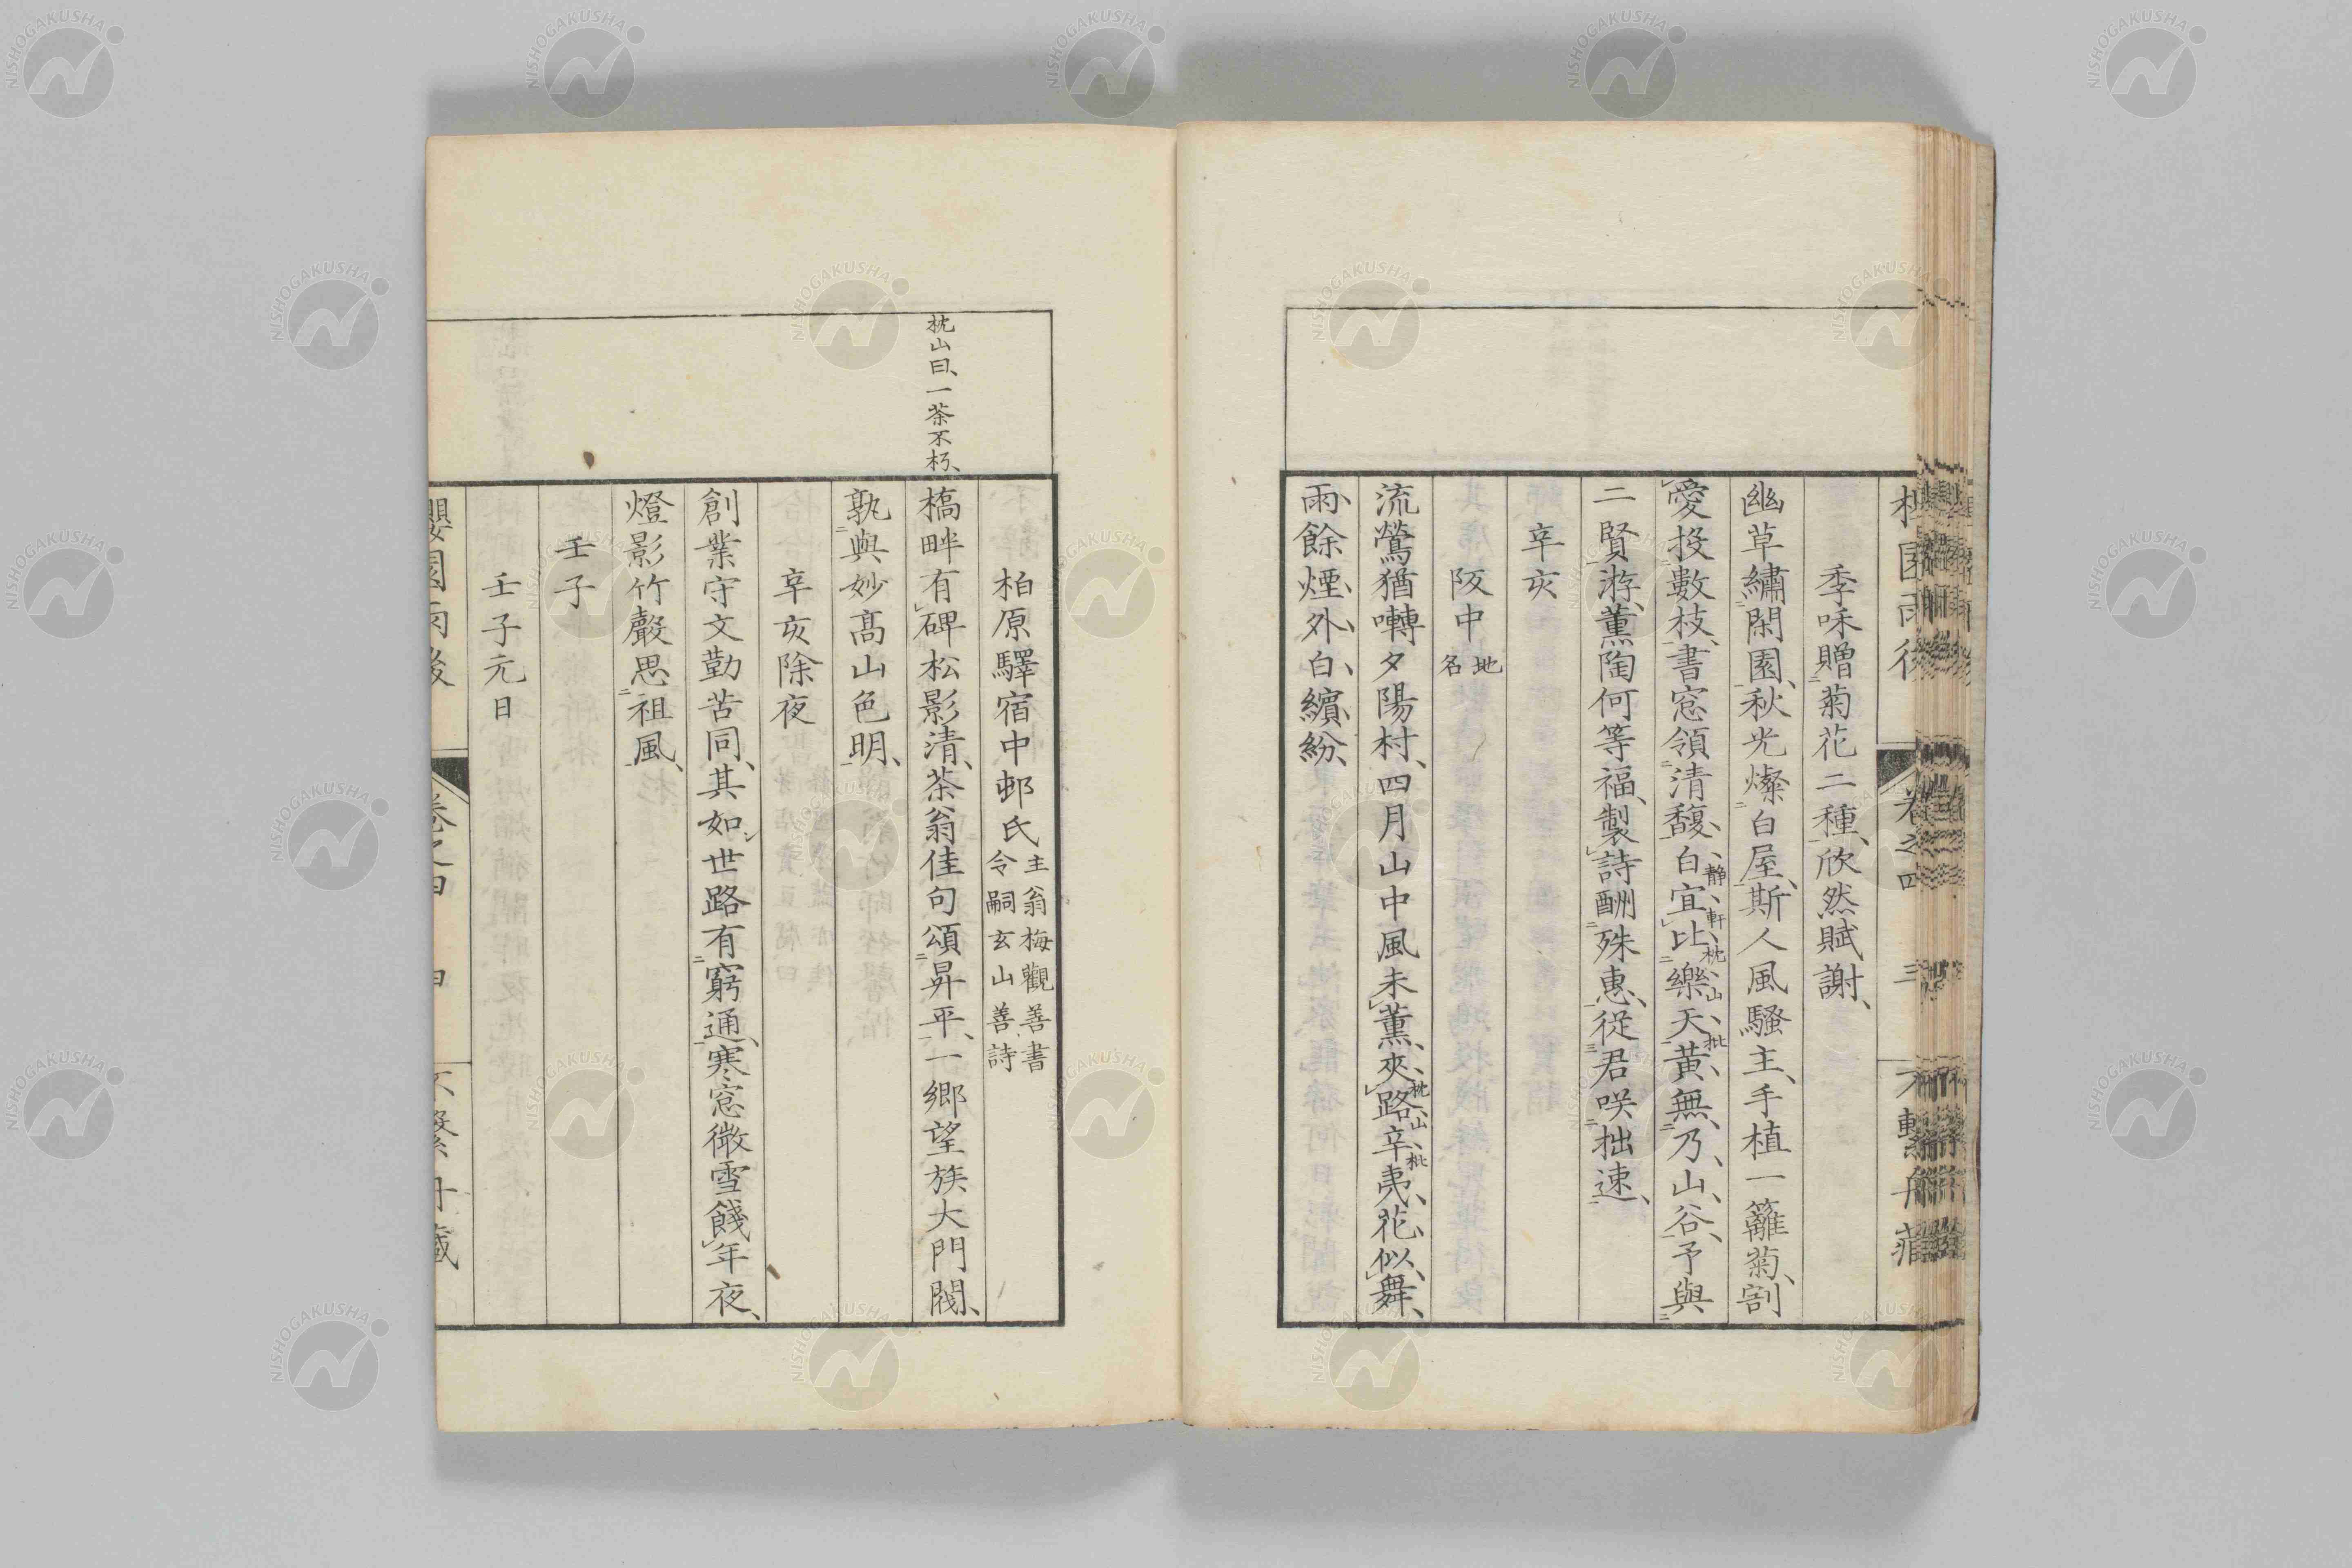 季味贈菊花二種、欣然賦謝、
幽草繡閑園、秋光燦白屋、斯人風騷主、手植一籬菊、割
愛投數枝、書窓領清馥、白宜比樂天、黃無乃山谷、予與
靜軒、枕山、批
二賢游、薰陶何等福、製詩酬殊惠、從君咲拙速、
辛亥
阪中地名
流鶯猶囀夕陽村、四月山中風未薰、夾路辛夷花似舞、
枕山批
雨餘煙外白繽紛、
柏原驛宿中邨氏主翁梅觀善書令嗣玄山善詩
枕山曰、一茶不朽、
橋畔有碑松影清、茶翁佳句頌昇平、一鄉望族大門閥、
孰與妙髙山色明、
辛亥除夜
創業守文勤苦同、其如世路有窮通、寒窓微雪餞年夜、
燈影竹聲思祖風、
壬子
壬子元日
NISHOGAKUSHA